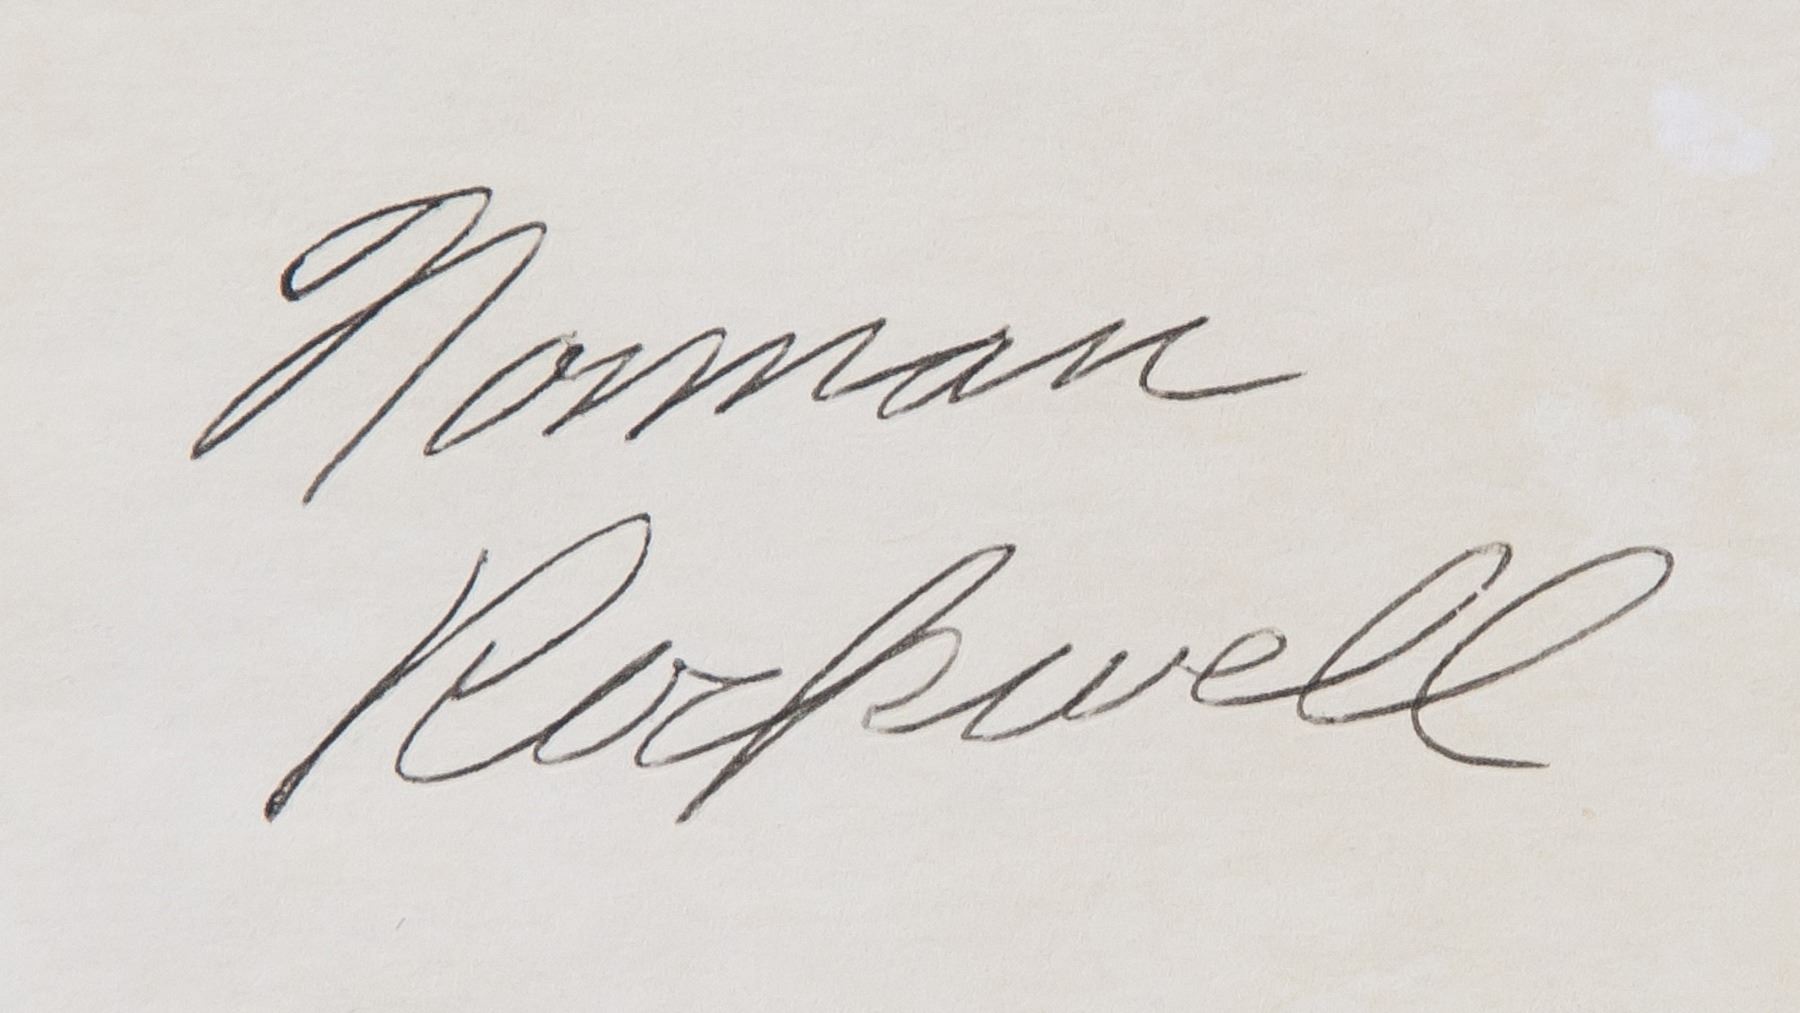 Norman
Rockwell